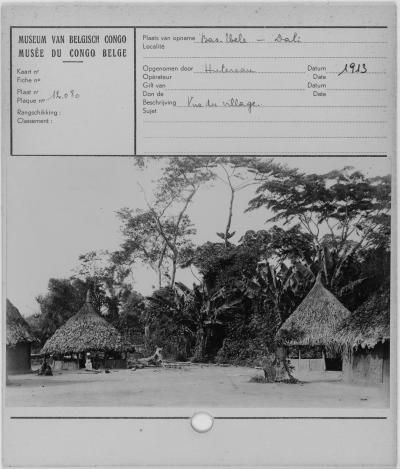 MUSEUM VAN BELGISCH CONGO
MUSÉE DU CONGO BELGE
Kaart nr
Fiche no
Plaat nr
Plaque no 12.080
Rangschikking :
Classement :
Plaats van opname Bas. Uele - Dali
Localité
Opgenomen door Hutereau Datum 1913
Opérateur Date
Gift van Datum
Don de Date
Beschrijving Vue du village.
Sujet